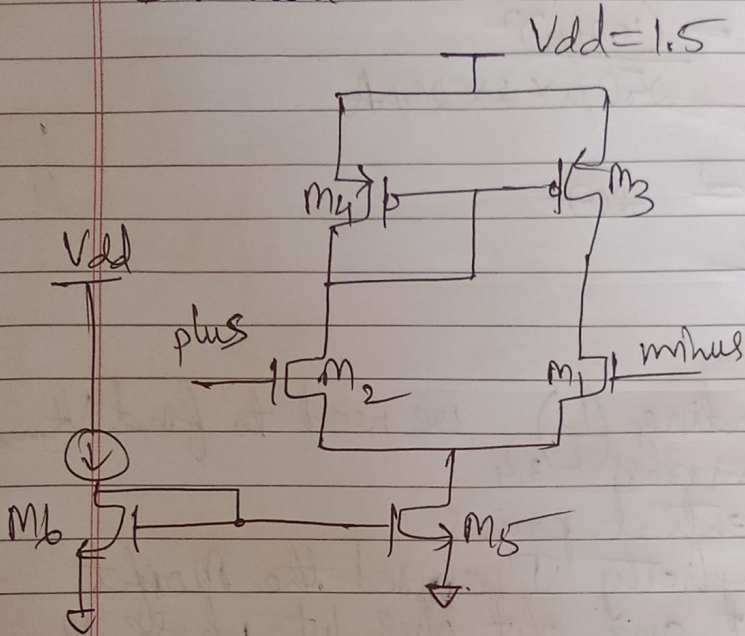 Vdd=1.5
M4
M3
Vdd
plus
M2
M1
minus
M6
M5